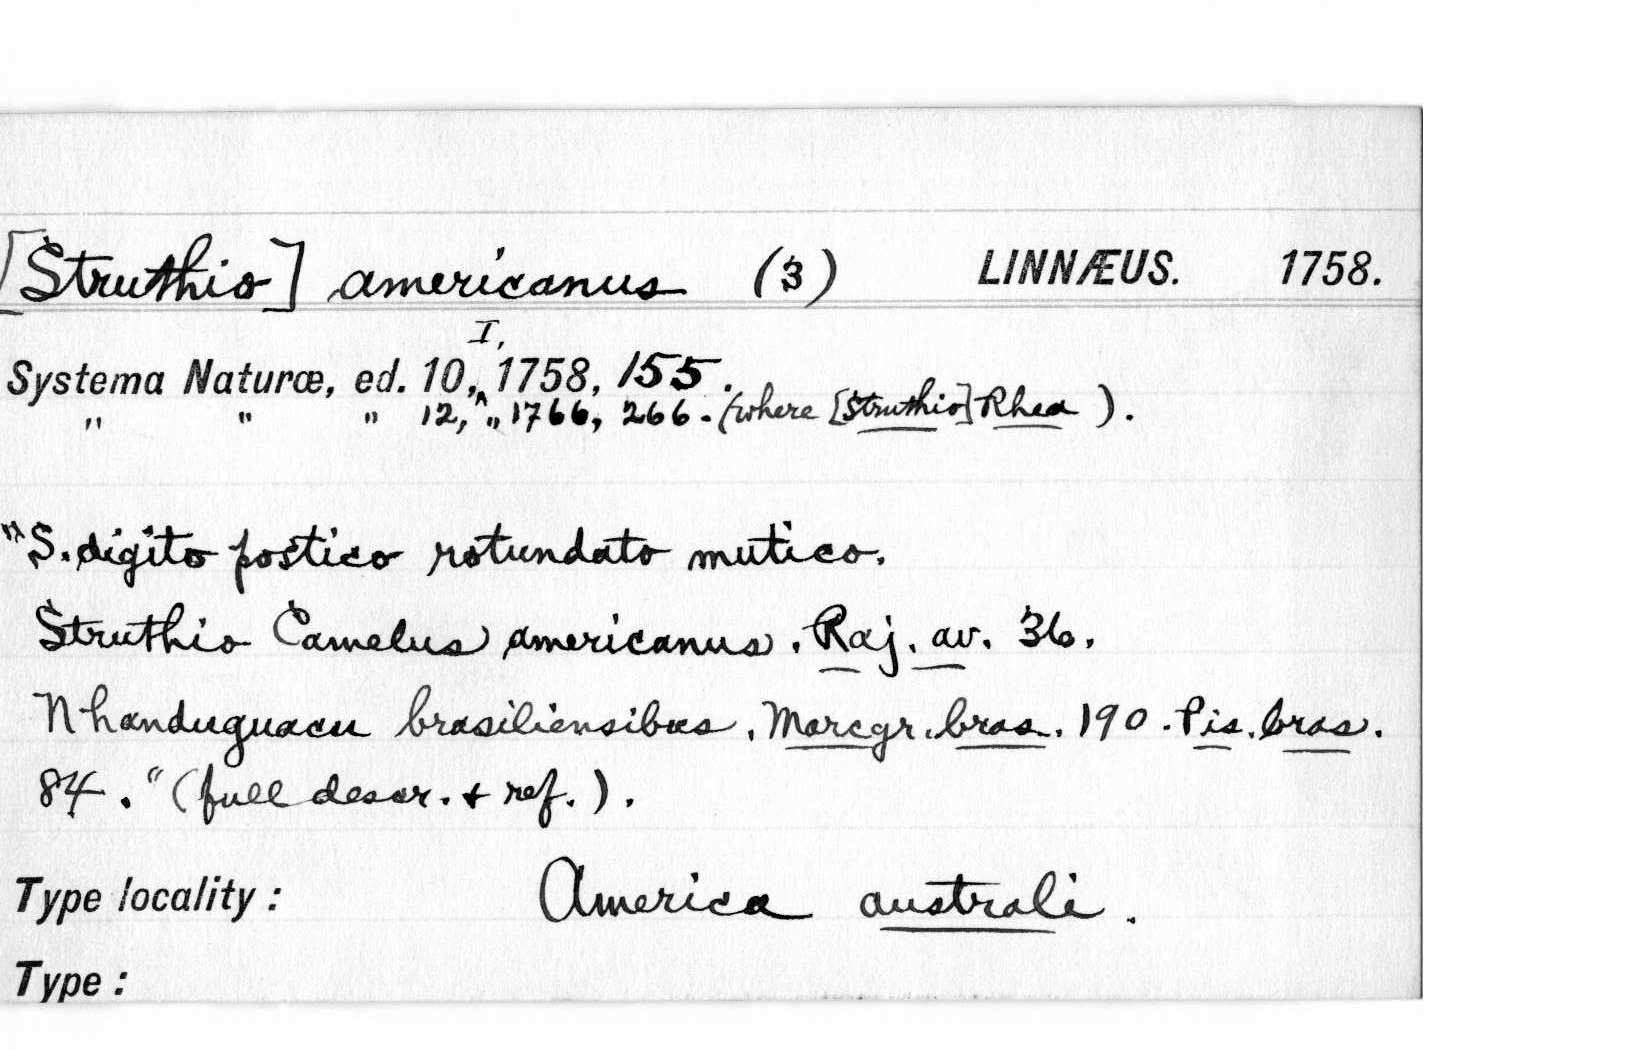 [Struthio] americanus (3) LINNÆUS. 1758.
I,
Systema Naturæ, ed. 10,^ 1758, 155.
" " " 12, „ 1766, 266. (where [Struthio] Rhea ).
"S. digito postico rotundato mutico.
Struthio Camelus americanus. Raj. av. 36.
Nhanduguacu brasiliensibus. Marcgr. bras. 190. Pis. bras.
84." (full descr. & ref.).
Type locality: America australi.
Type: